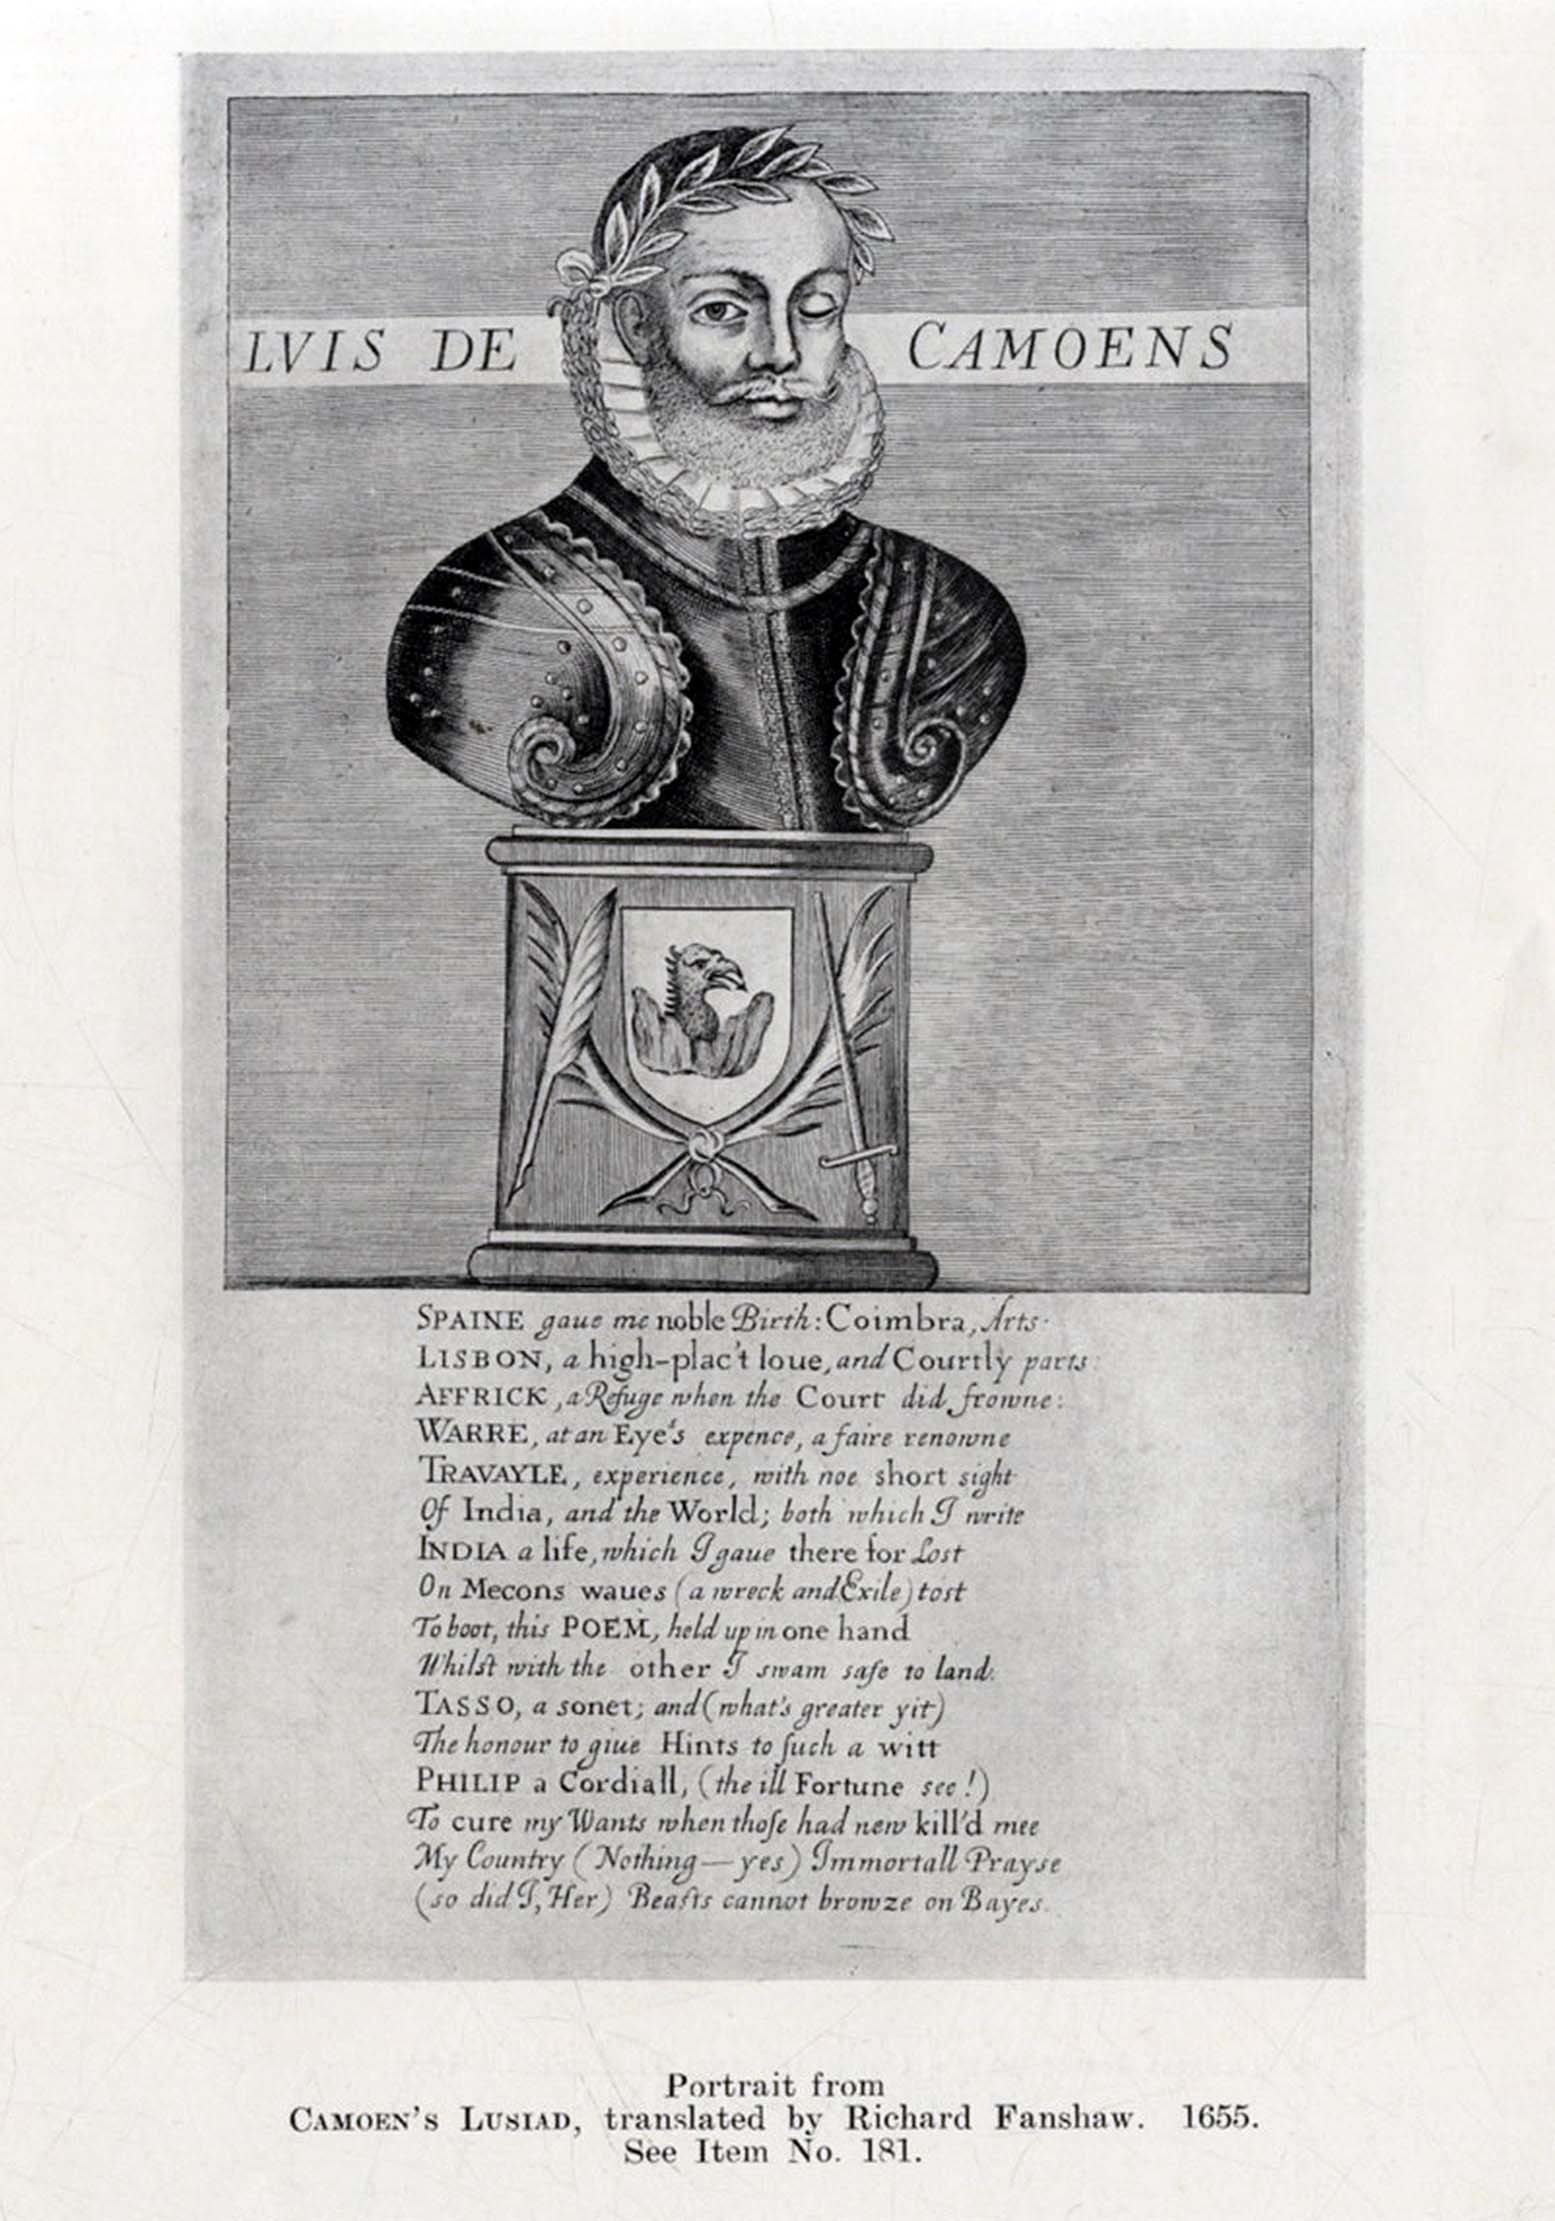 LVIS DE CAMOENS
SPAINE gaue me noble Birth: Coimbra, Arts.
LISBON, a high-plac't loue, and Courtly parts:
AFFRICK, a Refuge when the Court did frowne:
WARRE, at an Eye's expence, a faire renowne
TRAVAYLE, experience, with noe short sight
Of India, and the World; both which I write
INDIA a life, which I gaue there for Lost
On Mecons waues (a wreck and Exile) tost
To boot, this POEM, held up in one hand
Whilst with the other I swam safe to land:
TASSO, a sonet; and (what's greater yit)
The honour to giue Hints to ſuch a witt
PHILIP a Cordiall, (the ill Fortune see!)
To cure my Wants when thoſe had new kill'd mee
My Country (Nothing—yes) Immortall Prayse
(so did I, Her) Beaſts cannot browze on Bayes.
Portrait from
CAMOEN'S LUSIAD, translated by Richard Fanshaw. 1655.
See Item No. 181.